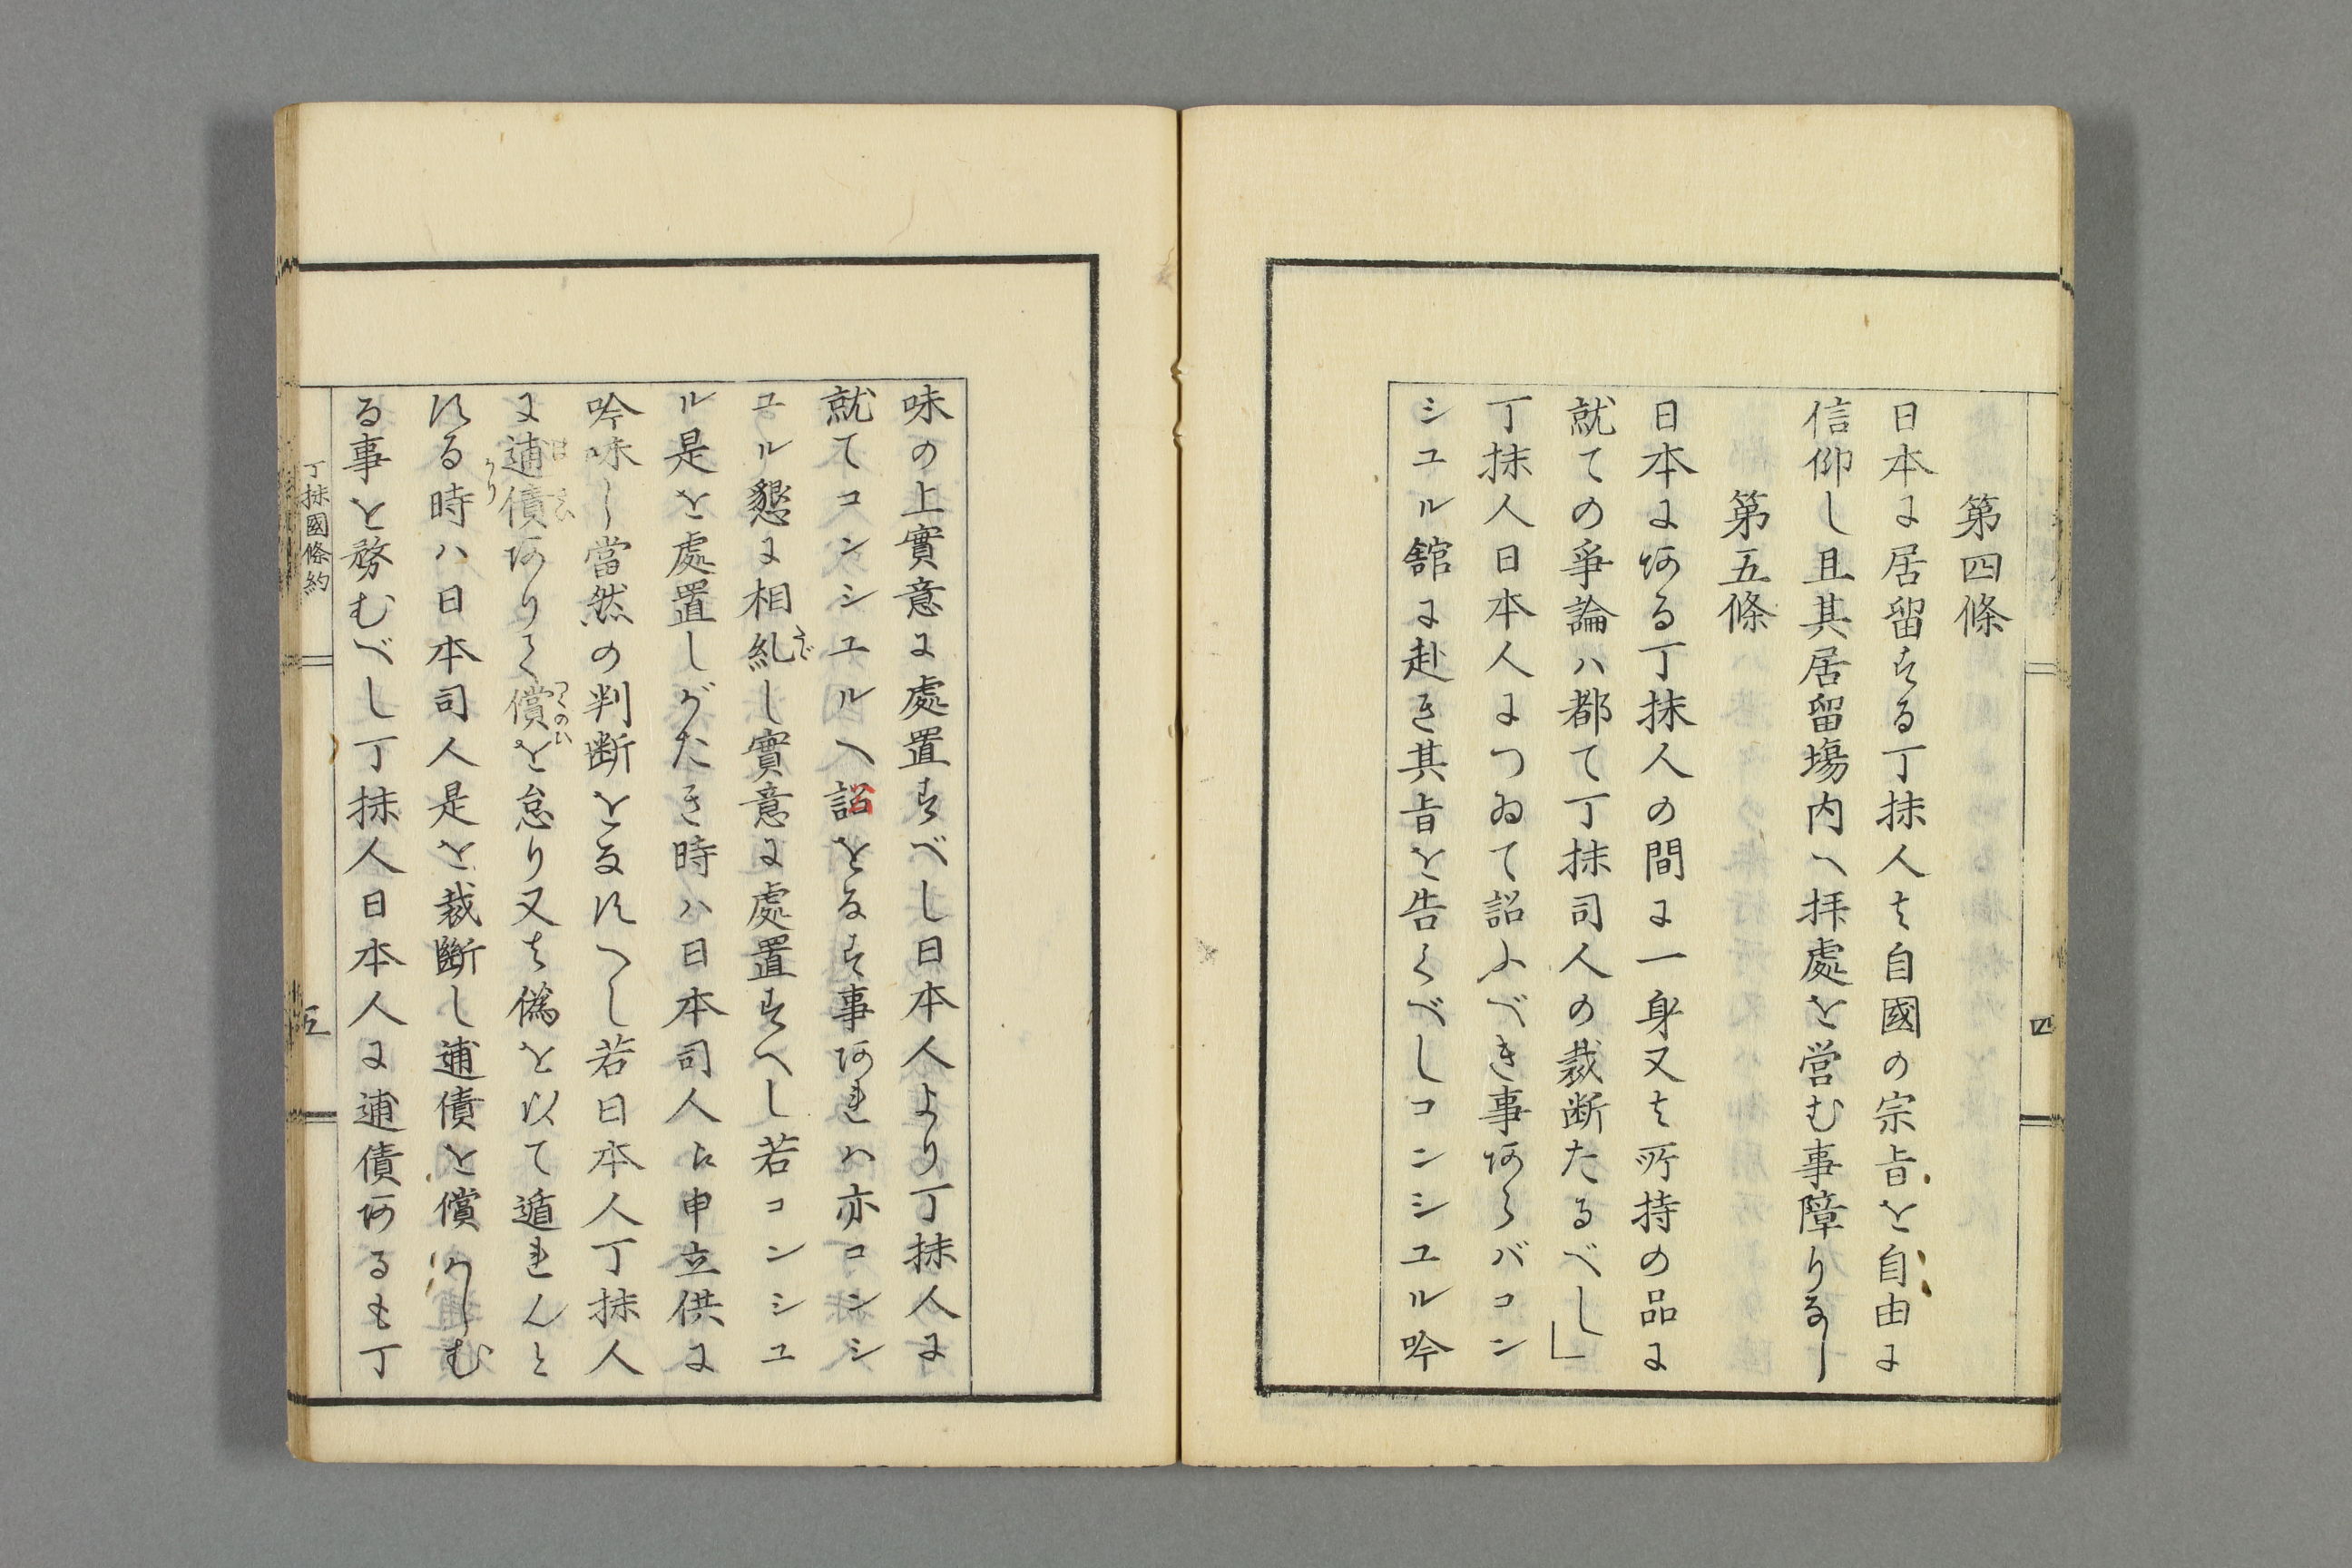 第四條
日本に居留する丁抹人は自國の宗旨を自由に
信仰し且其居留塲内へ拝處を営む事障りなし
第五條
日本に在る丁抹人の間に一身又は所持の品に
就ての爭論ハ都て丁抹司人の裁断たるべし」
丁抹人日本人につゐて詔ふべき事あらバコン
シユル舘に赴き其旨を告くべしコンシユル吟
四
味の上實意に處置すべし日本人より丁抹人に
就てコンシユルへ詔をなす事あれハ亦コンシ
ユル懇に相糺し實意に處置すへし若コンシユ
ル是を處置しがたき時ハ日本司人に申立供に
吟味し當然の判断をなすへし若日本人丁抹人
に逋債ありて償を怠り又は偽を以て遁れんと
する時ハ日本司人是を裁斷し逋債を償ハしむ
る事を務むべし丁抹人日本人に逋債あるも丁
丁抹國條約
五